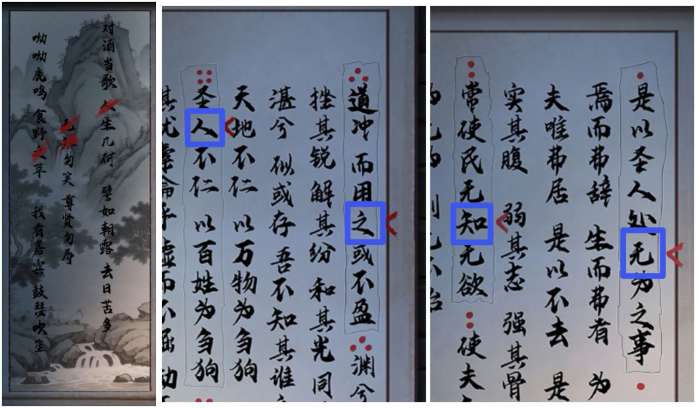 对酒当歌 人生几何 譬如朝露 去日苦多
勿笑 尊贤勿辱
呦呦鹿鸣 食野之苹 我有嘉宾 鼓瑟吹笙
道冲 而用之或不盈 渊兮
挫其锐 解其纷 和其光 同
湛兮 似或存 吾不知其谁
天地不仁 以万物为刍狗
圣人不仁 以百姓为刍狗
其犹橐龠乎 虚而不屈 动
是以圣人处无为之事
焉而弗辞 生而弗有 为
夫唯弗居 是以不去 是
实其腹 弱其志 强其骨
常使民无知无欲 使夫
为无为 则无不治